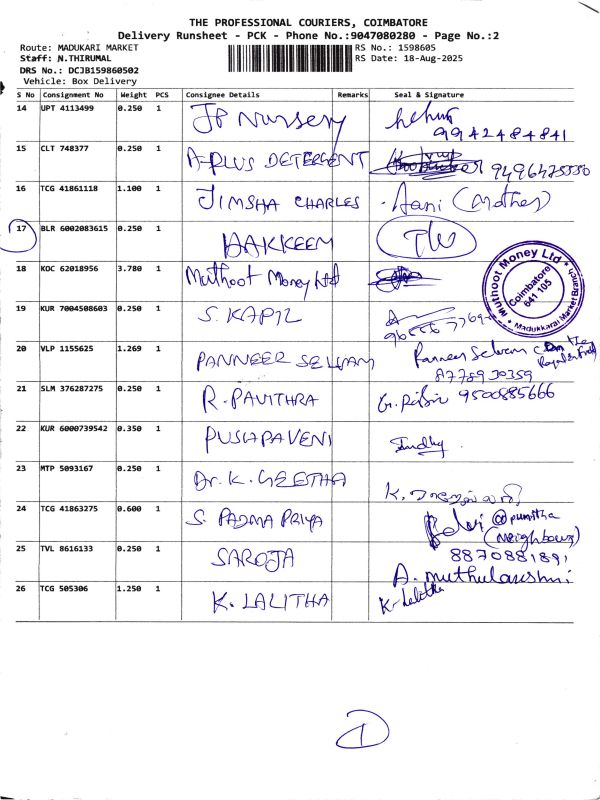 THE PROFESSIONAL COURIERS, COIMBATORE
Delivery Runsheet - PCK - Phone No.:9047080280 - Page No.:2
Route: MADUKARI MARKET RS No.: 1598605
Staff: N.THIRUMAL RS Date: 18-Aug-2025
DRS No.: DCJB159860502
Vehicle: Box Delivery
S No Consignment No Weight PCS Consignee Details Remarks Seal & Signature
14 UPT 4113499 0.250 1 JP NURSERY
9942484841
15 CLT 748377 0.250 1 A-PLUS DETERGENT 9496475550
16 TCG 41861118 1.100 1 JIMSHA CHARLES Aani (Mother)
17 BLR 6002083615 0.250 1 HAKKEEM
18 KOC 62018956 3.780 1 Muthoot Money Ltd
Muthoot Money Ltd Coimbatore 641 105 Madukkarai Market Branch
19 KUR 7004508603 0.250 1 S. KAPIL
20 VLP 1155625 1.269 1 PANNEER SELVAM Panneer Selvam
8778930359
21 SLM 376287275 0.250 1 R. PAVITHRA 9500885666
22 KUR 6000739542 0.350 1 PUSHPAVENI Sindhu
23 MTP 5093167 0.250 1 Dr. K. GEETHA K.
24 TCG 41863275 0.600 1 S. PADMA PRIYA Devi @punitha
(Neighbour)
25 TVL 8616133 0.250 1 SAROJA 8870881891
A. muthulakshmi
26 TCG 505306 1.250 1 K. LALITHA K. Lalitha
1